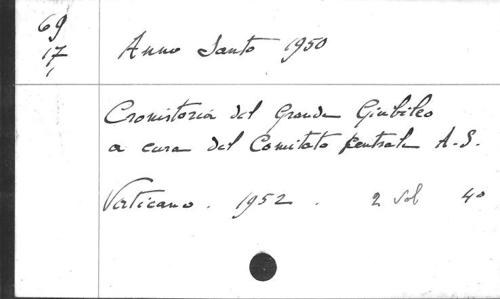 69
17
1
Anno Santo 1950
Cronistoria del Grande Giubileo
a cura del Comitato Centrale A.S.
Vaticano. 1952. 2 vol 4°